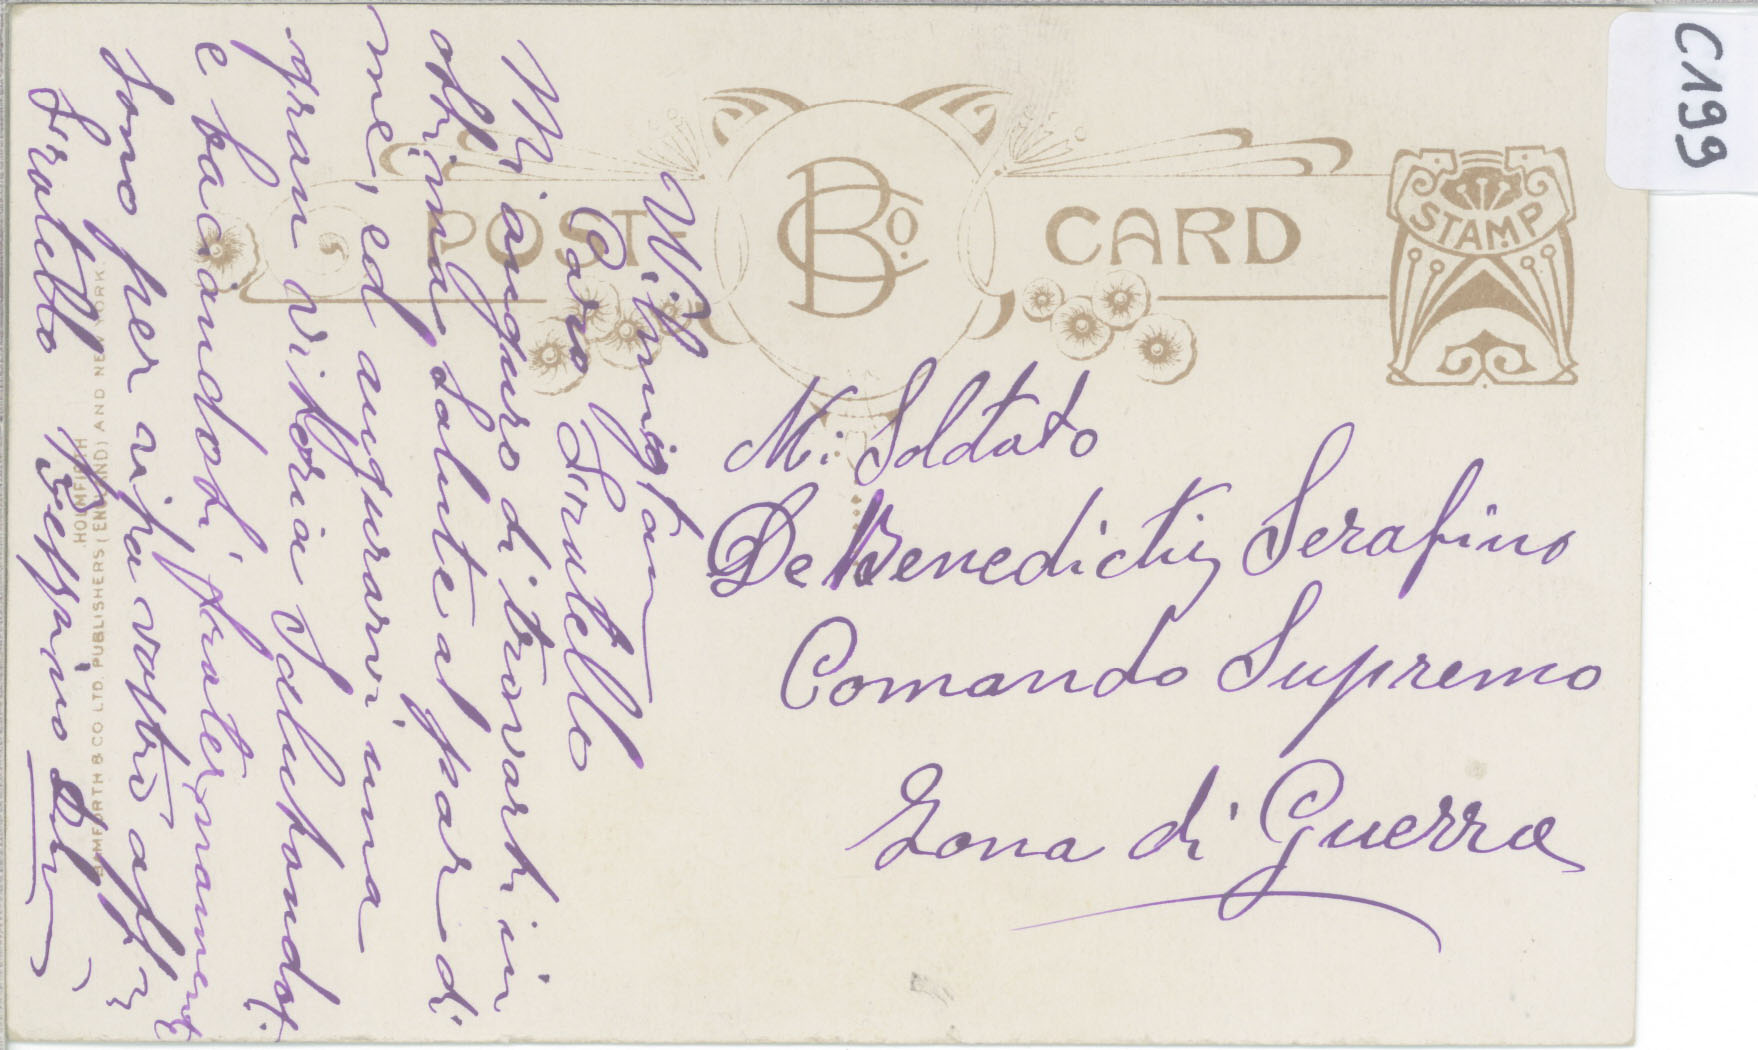 C199
POST CARD
BCo.
STAMP
Wilmigton
Caro Fratello
Mi anguro di trovarti in
ottima Salute al par di
me, ed augurarvi una
gran vittoria Salutandoti
e baciandoti fraternamente
Sono per sipa vostro aff
Fratello Beppino
M: Soldato
De Benedictis Serafino
Comando Supremo
Zona di Guerra
BAMFORTH & CO LTD. PUBLISHERS (ENGLAND) AND NEW YORK
HOLMFIRTH